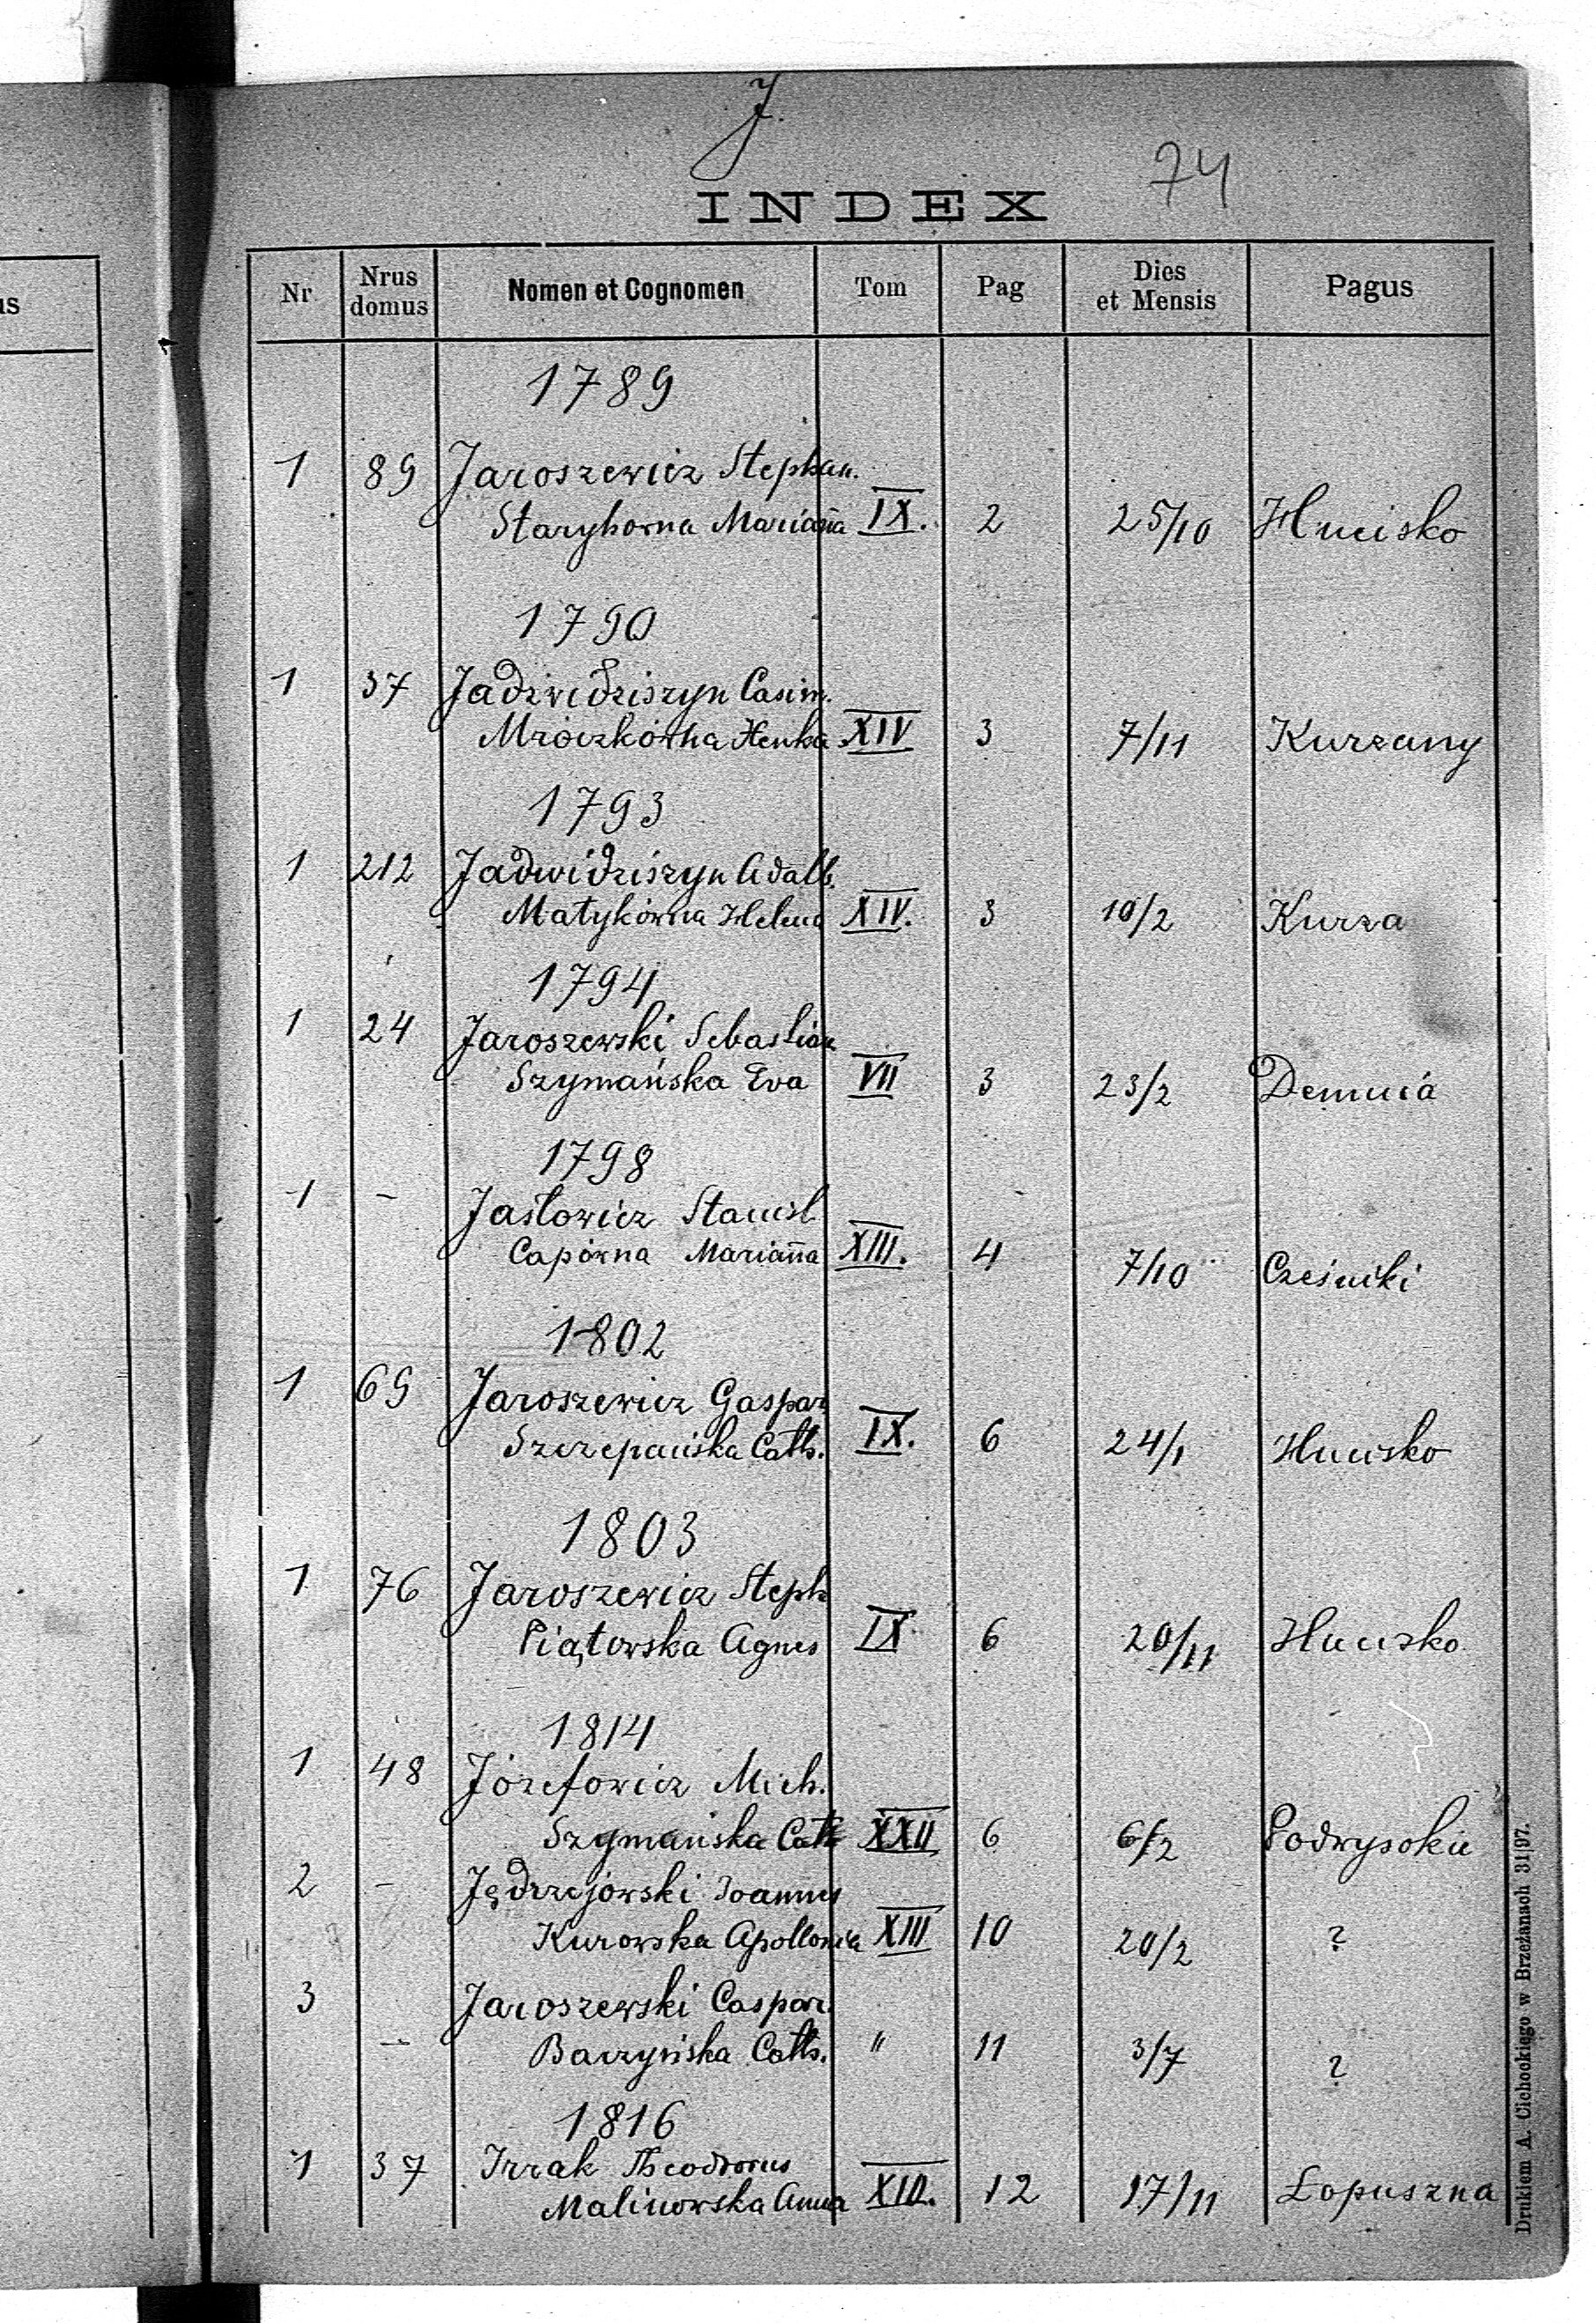 J.
74
INDEX
us
Nr Nrus domus Nomen et Cognomen Tom Pag Dies et Mensis Pagus
1789
1 89 Jaroszewicz Stephan.
Staryhorna Mariana IX. 2 25/10 Hucisko
1790
1 37 Jadzwidziszyn Casim.
Mroczkowna Henka XIV 3 7/11 Kurzany
1793
1 212 Jadwidziszyn Adalb.
Matykówna Helena XIV. 3 10/2 Kurza
1794
1 24 Jaroszewski Sebastian
Szymańska Eva VII 3 23/2 Demnia
1798
1 - Jasłowicz Stanisl.
Capówna Marianna XIII. 4 7/10 Cześniki
1802
1 69 Jaroszewicz Gaspar
Szczepańska Cath. IX. 6 24/1 Hucisko
1803
1 76 Jaroszewicz Steph
Piątowska Agnes IX. 6 20/11 Hucisko
1814
1 48 Józefowicz Mich.
Szymańska Cath XXII 6 6/2 Podwysokie
2 - Jędrzejowski Joannes
Kurowska Apollonia XIII 10 20/2 ?
3 Jaroszewski Caspar.
- Baczyńska Cath. " 11 3/7 ?
1816
1 37 Irrak Theodorus
Malinowska Anna 12 17/11 Lopuszna
Drukiem A. Cichockiego w Brzeżanach 31|97.